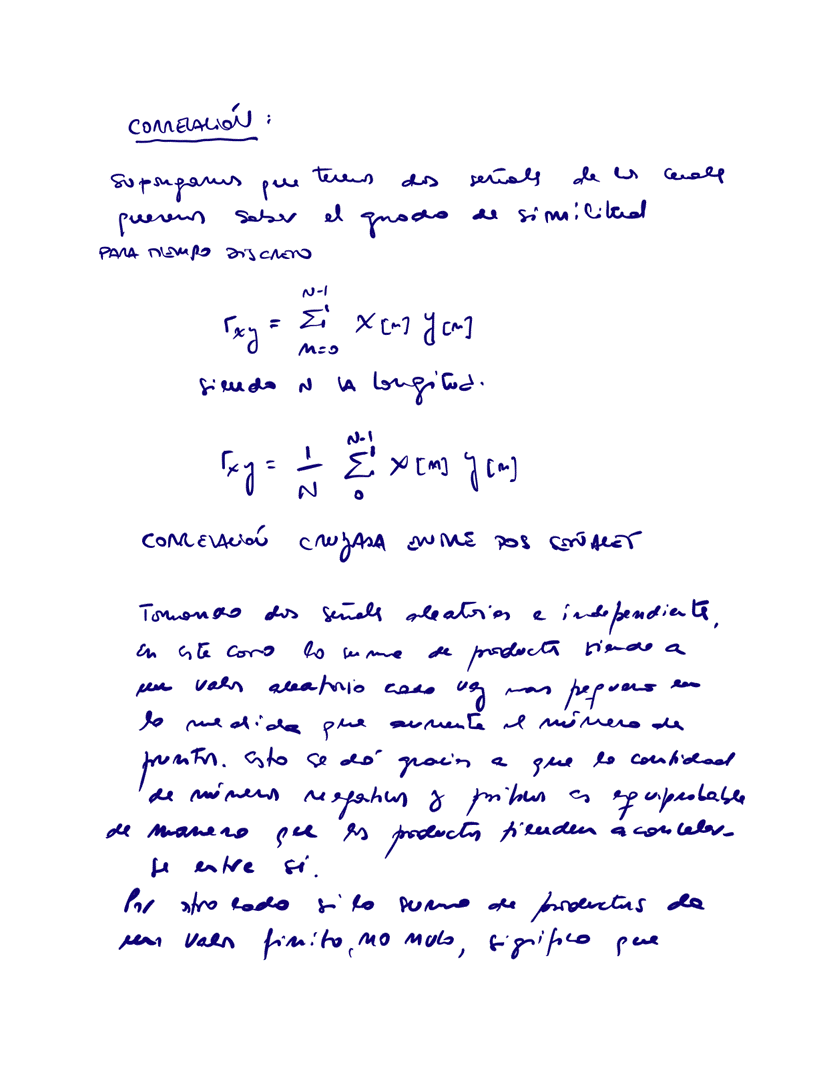 CORRELACIÓN :
Supongamos que tenemos dos señales de las cuales
queremos saber el grado de similitud
PARA TIEMPO DISCRETO
N-1
rxy = Σ x[n] y[n]
n=0
siendo N la longitud.
N-1
rxy = 1/N Σ x[n] y[n]
0
CORRELACIÓN CRUZADA ENTRE DOS SEÑALES
Tomando dos señales aleatorias e independientes,
en este caso la suma de productos tiende a
un valor aleatorio cada vez mas pequeño en
la medida que aumente el número de
puntos. Esto se dá gracias a que la cantidad
de números negativos y positivos es equiprobable
de manera que los productos tienden a cancelar-
se entre sí.
Por otro lado si la suma de productos da
un valor finito, no nulo, significa que